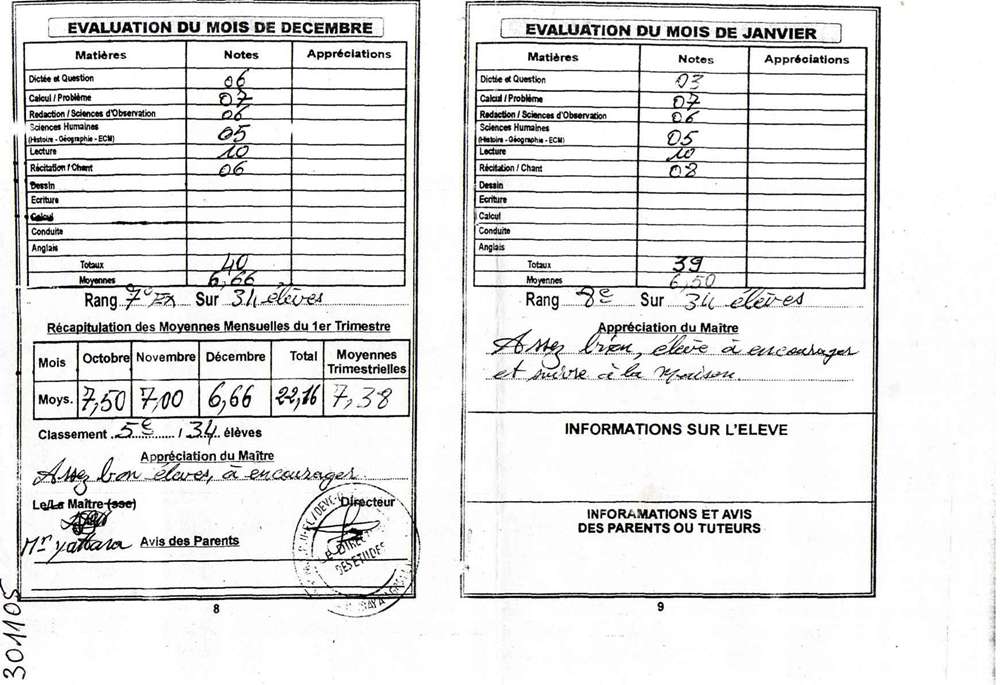 EVALUATION DU MOIS DE DECEMBRE
Matières Notes Appréciations
Dictée et Question 06
Calcul / Problème 07
Redaction / Sciences d'Observation 06
Sciences Humaines
(Histoire - Géographie - ECM) 05
Lecture 10
Récitation / Chant 06
Dessin
Ecriture
Calcul
Conduite
Anglais
Totaux 40
Moyennes 6,66
Rang 7e Ex Sur 34 élèves
Récapitulation des Moyennes Mensuelles du 1er Trimestre
Mois Octobre Novembre Décembre Total Moyennes Trimestrielles
Moys. 7,50 7,00 6,66 22,16 7,38
Classement 5e / 34 élèves
Appréciation du Maître
Assez bon élèves, à encourager.
Le/La Maître (sse) Directeur
Mr Yattara Avis des Parents
LE DIRECT
DES ETUDES
8
301105
EVALUATION DU MOIS DE JANVIER
Matières Notes Appréciations
Dictée et Question 03
Calcul / Problème 07
Redaction / Sciences d'Observation 06
Sciences Humaines
(Histoire - Géographie - ECM) 05
Lecture 10
Récitation / Chant 08
Dessin
Ecriture
Calcul
Conduite
Anglais
Totaux 39
Moyennes 6,50
Rang 8e Sur 34 élèves
Appréciation du Maître
Assez bien, élève à encourager
et suivre à la maison.
INFORMATIONS SUR L'ELEVE
INFORAMATIONS ET AVIS
DES PARENTS OU TUTEURS
9